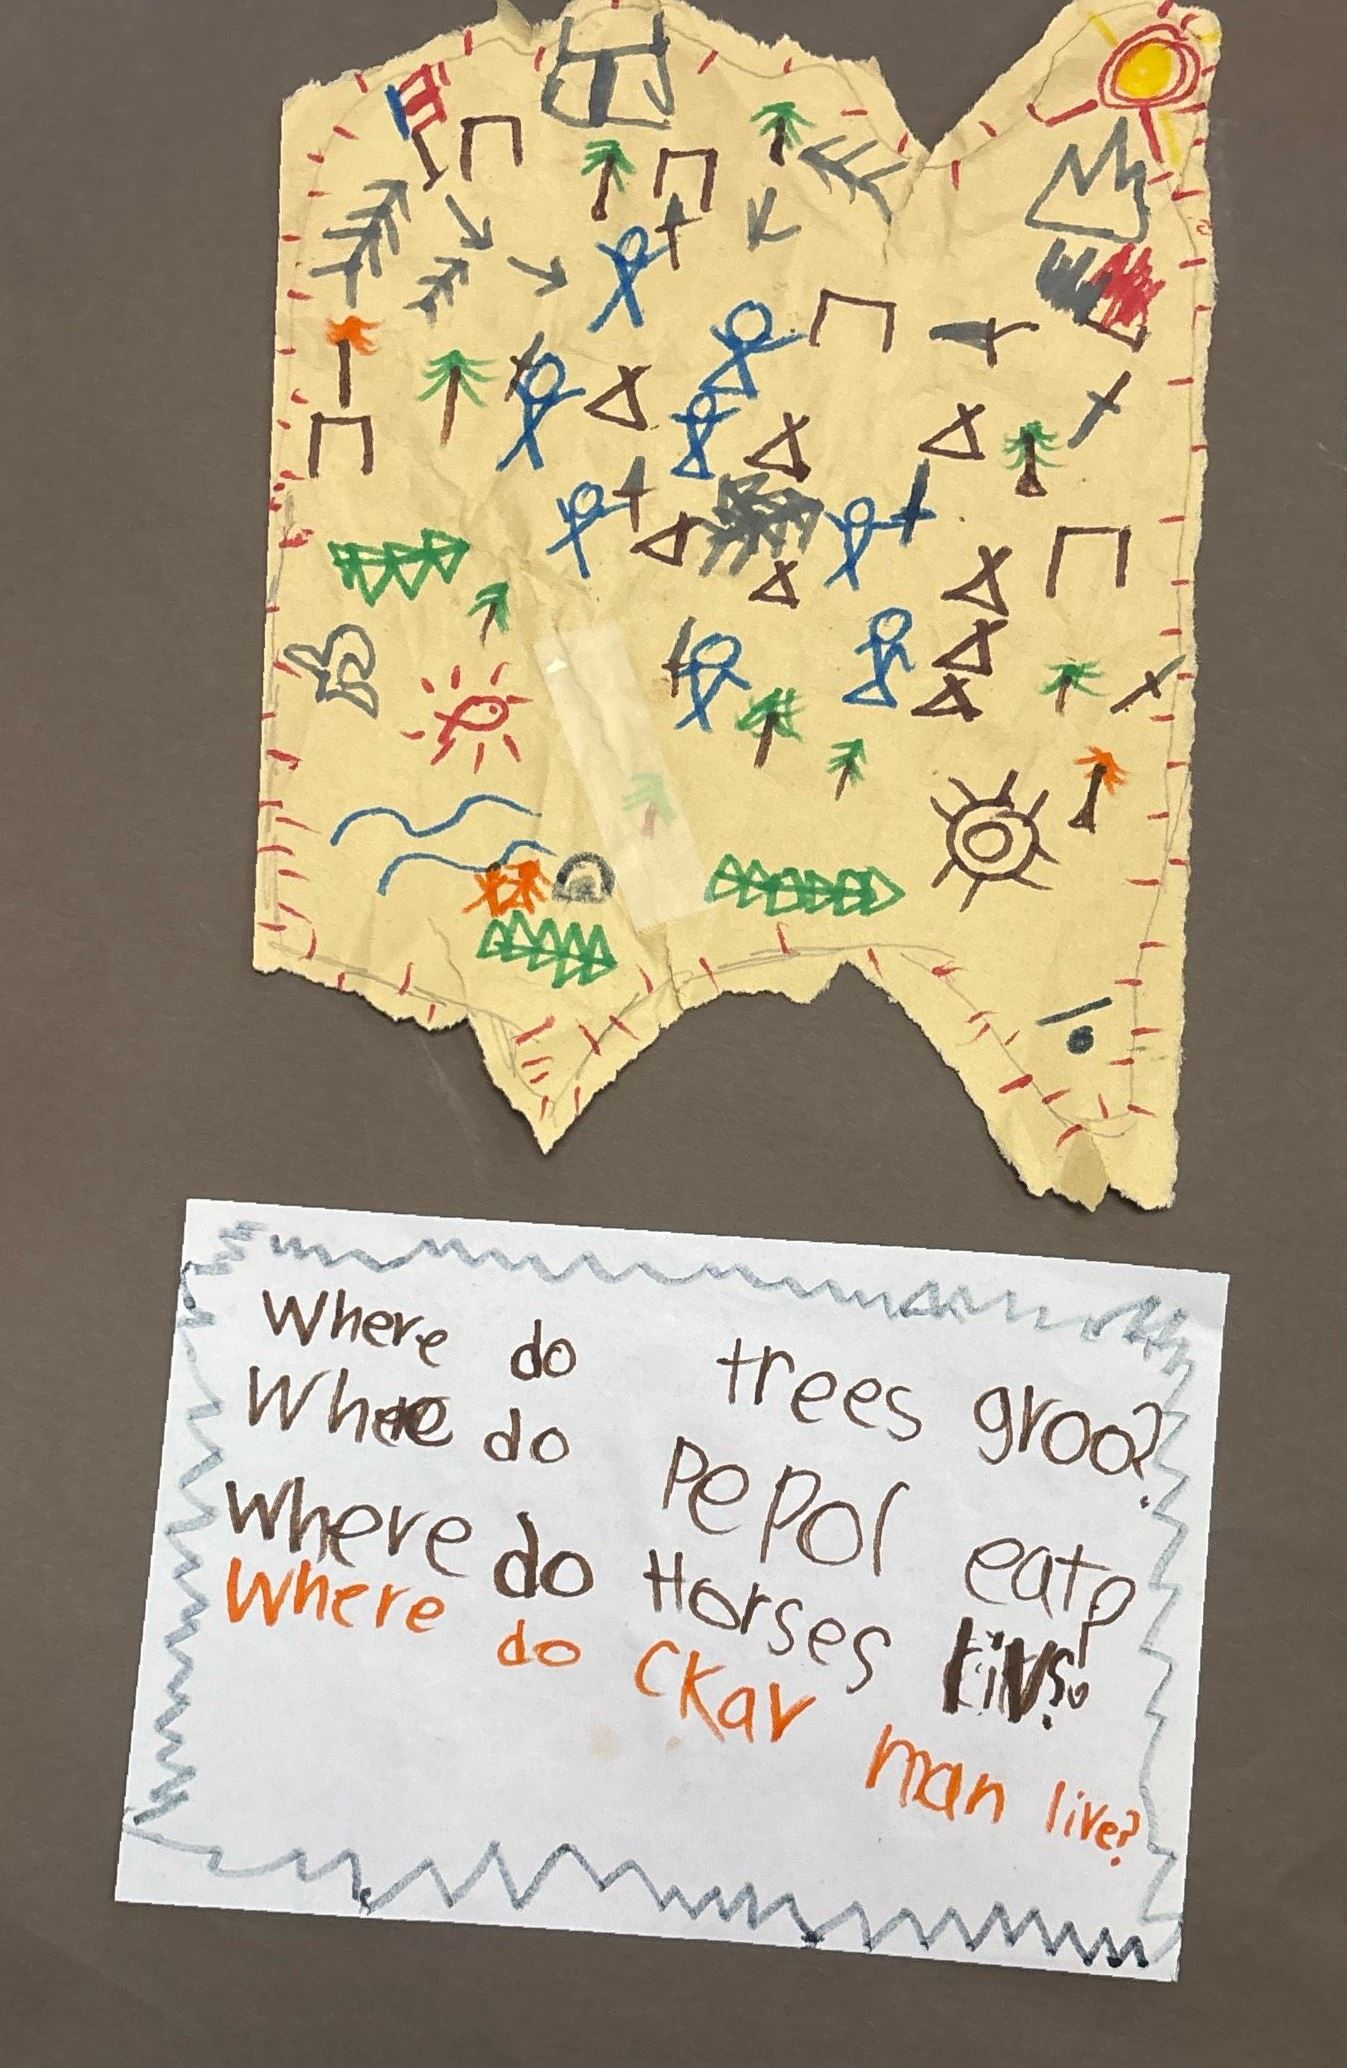 Where do trees groo?
Where do Pepol eat?
Where do Horses liv?
Where do CKav man live?